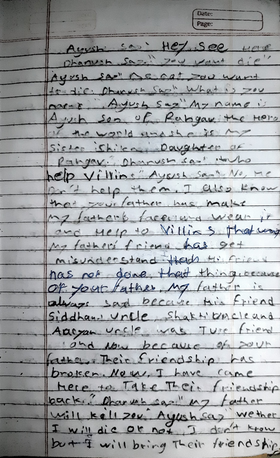 Date:
Page:
Ayush say" Hey, see here
Dharush say" you want die"
Ayush say" you want
to die. Dharush say" What is you
name. Ayush say" My name is
Ayush son of Rahgav the Hero
of the world and she is my
sister Ishika. Daughter of
Rahgav. Dharush say" who
help Villin". Ayush say" No, He
don't help them. I also know
that your father has make
my father's face and wear it
and Help to Villins. That way
My father's friend has get
misunderstand that His friend
has not done, that thing. because
Of your father. My father is
always sad because his friend
Siddhant uncle, Shakti Uncle and
Aaryan uncle was Ture friend
and Now because of your
father. Their friendship has
broken. Now, I have come
Here to Take Their friendship
back." Dharush say" my father
will kell you". Ayush say wether
I will die or not. I don't know
but I will bring Their friendship